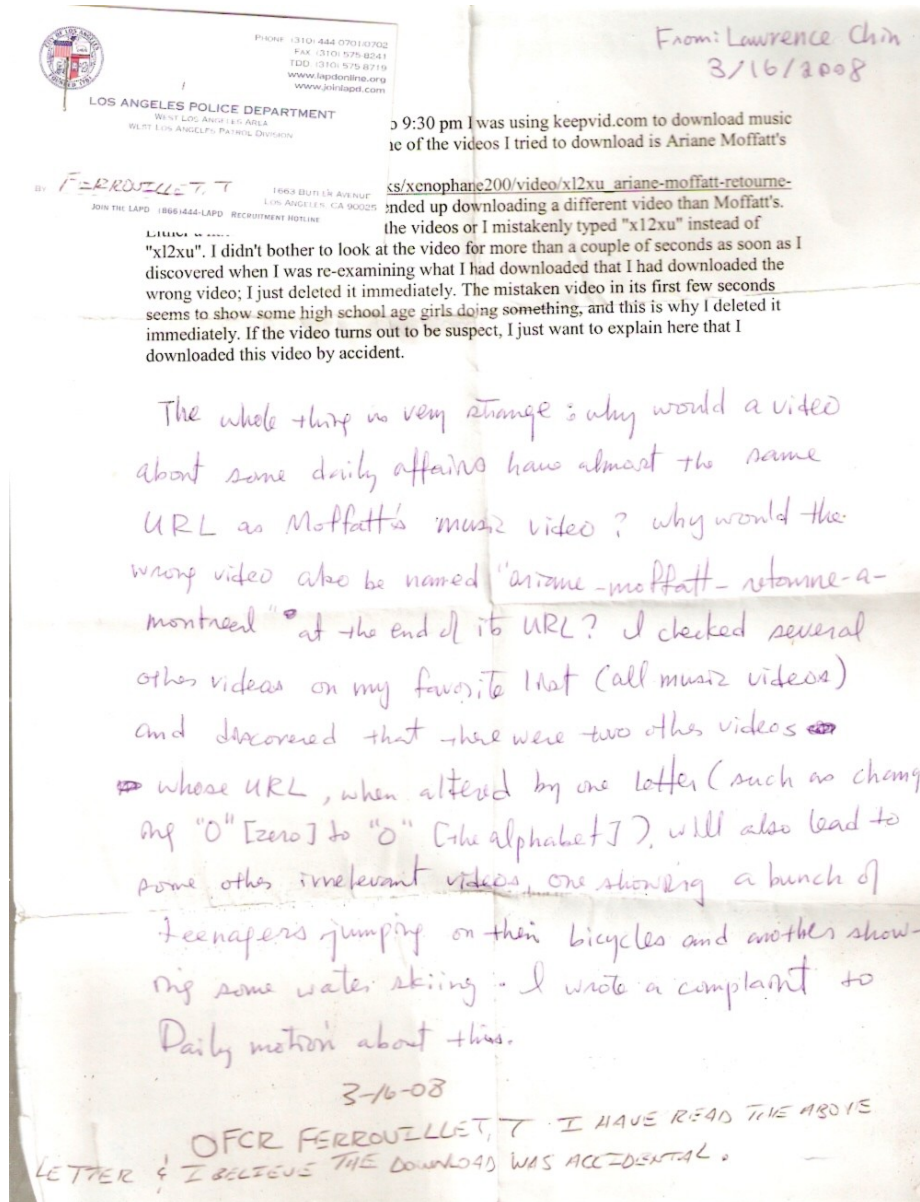 From: Lawrence Chin
3/16/2008
PHONE (310) 444 0701/0702
FAX (310) 575-8241
TDD (310) 575-8719
www.lapdonline.org
www.joinlapd.com
LOS ANGELES POLICE DEPARTMENT
WEST LOS ANGELES AREA
WEST LOS ANGELES PATROL DIVISION
BY FERROUILLET, T
1663 BUTLER AVENUE
LOS ANGELES, CA 90025
JOIN THE LAPD (866)444-LAPD RECRUITMENT HOTLINE
o 9:30 pm I was using keepvid.com to download music
ne of the videos I tried to download is Ariane Moffatt's
ks/xenophane200/video/xl2xu_ariane-moffatt-retourne-
ended up downloading a different video than Moffatt's.
the videos or I mistakenly typed "x12xu" instead of
"xl2xu". I didn't bother to look at the video for more than a couple of seconds as soon as I
discovered when I was re-examining what I had downloaded that I had downloaded the
wrong video; I just deleted it immediately. The mistaken video in its first few seconds
seems to show some high school age girls doing something, and this is why I deleted it
immediately. If the video turns out to be suspect, I just want to explain here that I
downloaded this video by accident.
The whole thing is very strange : why would a video
about some daily affairs have almost the same
URL as Moffatt's music video ? why would the
wrong video also be named "ariane-moffatt-retourne-a-
montreal" at the end of its URL? I checked several
other videos on my favorite list (all music videos)
and discovered that there were two other videos
whose URL, when altered by one letter (such as chang
ing "0" [zero] to "o" [the alphabet]), will also lead to
some other irrelevant videos, one showing a bunch of
teenagers jumping on their bicycles and another show-
ing some water skiing. I wrote a complaint to
Daily motion about this.
3-16-08
OFCR FERROUILLET, T I HAVE READ THE ABOVE
LETTER & I BELIEVE THE DOWNLOAD WAS ACCIDENTAL.